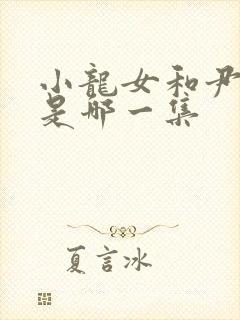 小龍女和尹
是哪一集
夏言冰